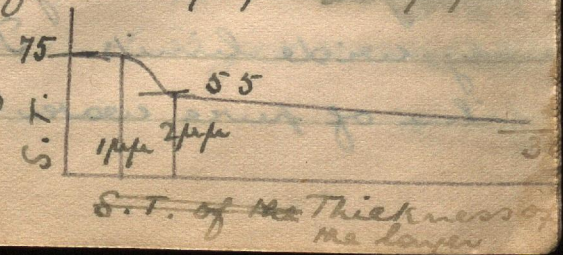 75
55
S.T.
1μμ 2μμ
S.T. of the Thickness of
the layer